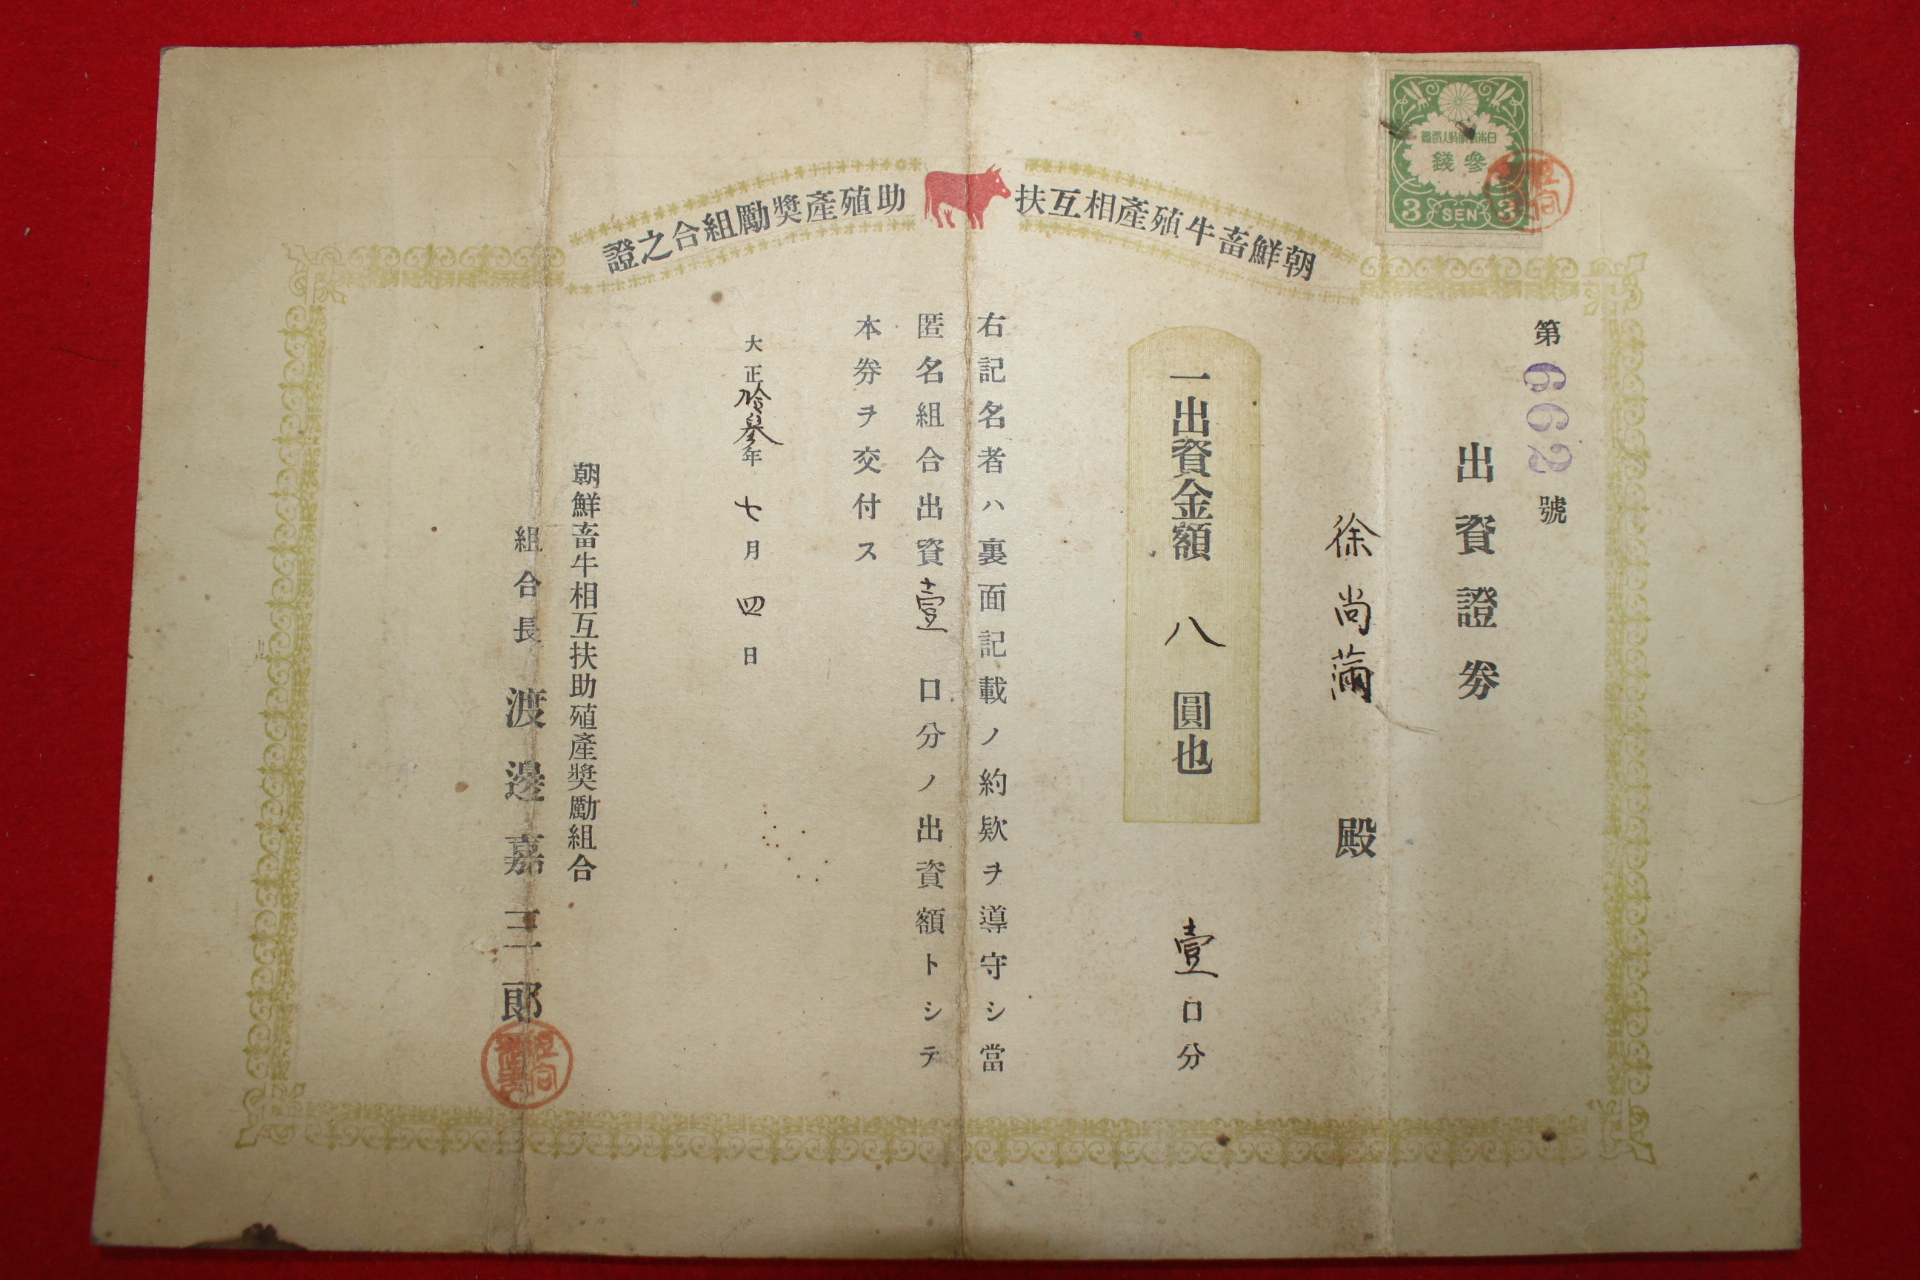 朝鮮畜牛殖產相互扶助殖產奬勵組合之證
參錢
3 SEN 3
第662號
出資證券
徐尚 殿
一出資金額八圓也 壹口分
右記名者ハ裏面記載ノ約欵ヲ導守シ當
匿名組合出資壹口分ノ出資額トシテ
本券ヲ交付ス
大正拾參年七月四日
朝鮮畜牛相互扶助殖產奬勵組合
組合長 渡邊嘉三郎